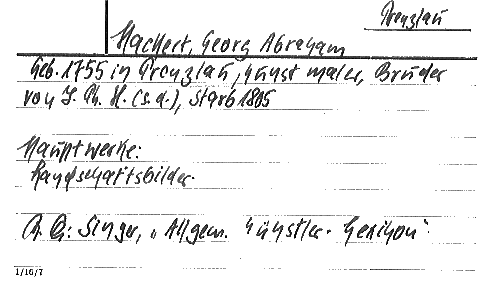 Prenzlau
Hackert, Georg Abraham
Geb. 1755 in Prenzlau, Kunstmaler, Bruder
von J. Ph. H. (s.d.), starb 1805
Hauptwerke:
Landschaftsbilder.
A. Q.: Singer, „Allgem. Künstler-Lexikon"
1/16/7